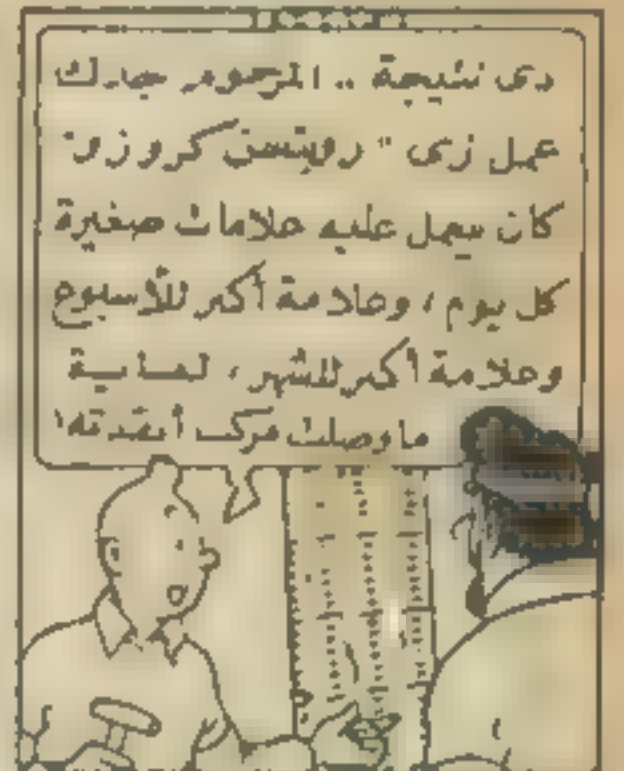 دى نتيجة .. المرحوم جدك
عمل زى " روبنسن كروزو"
كان بيعمل عليه علامات صغيرة
كل يوم ، وعلامة أكبر للأسبوع
وعلامة أكبر للشهر ، لغاية
ما وصلت مركب أنقذته !